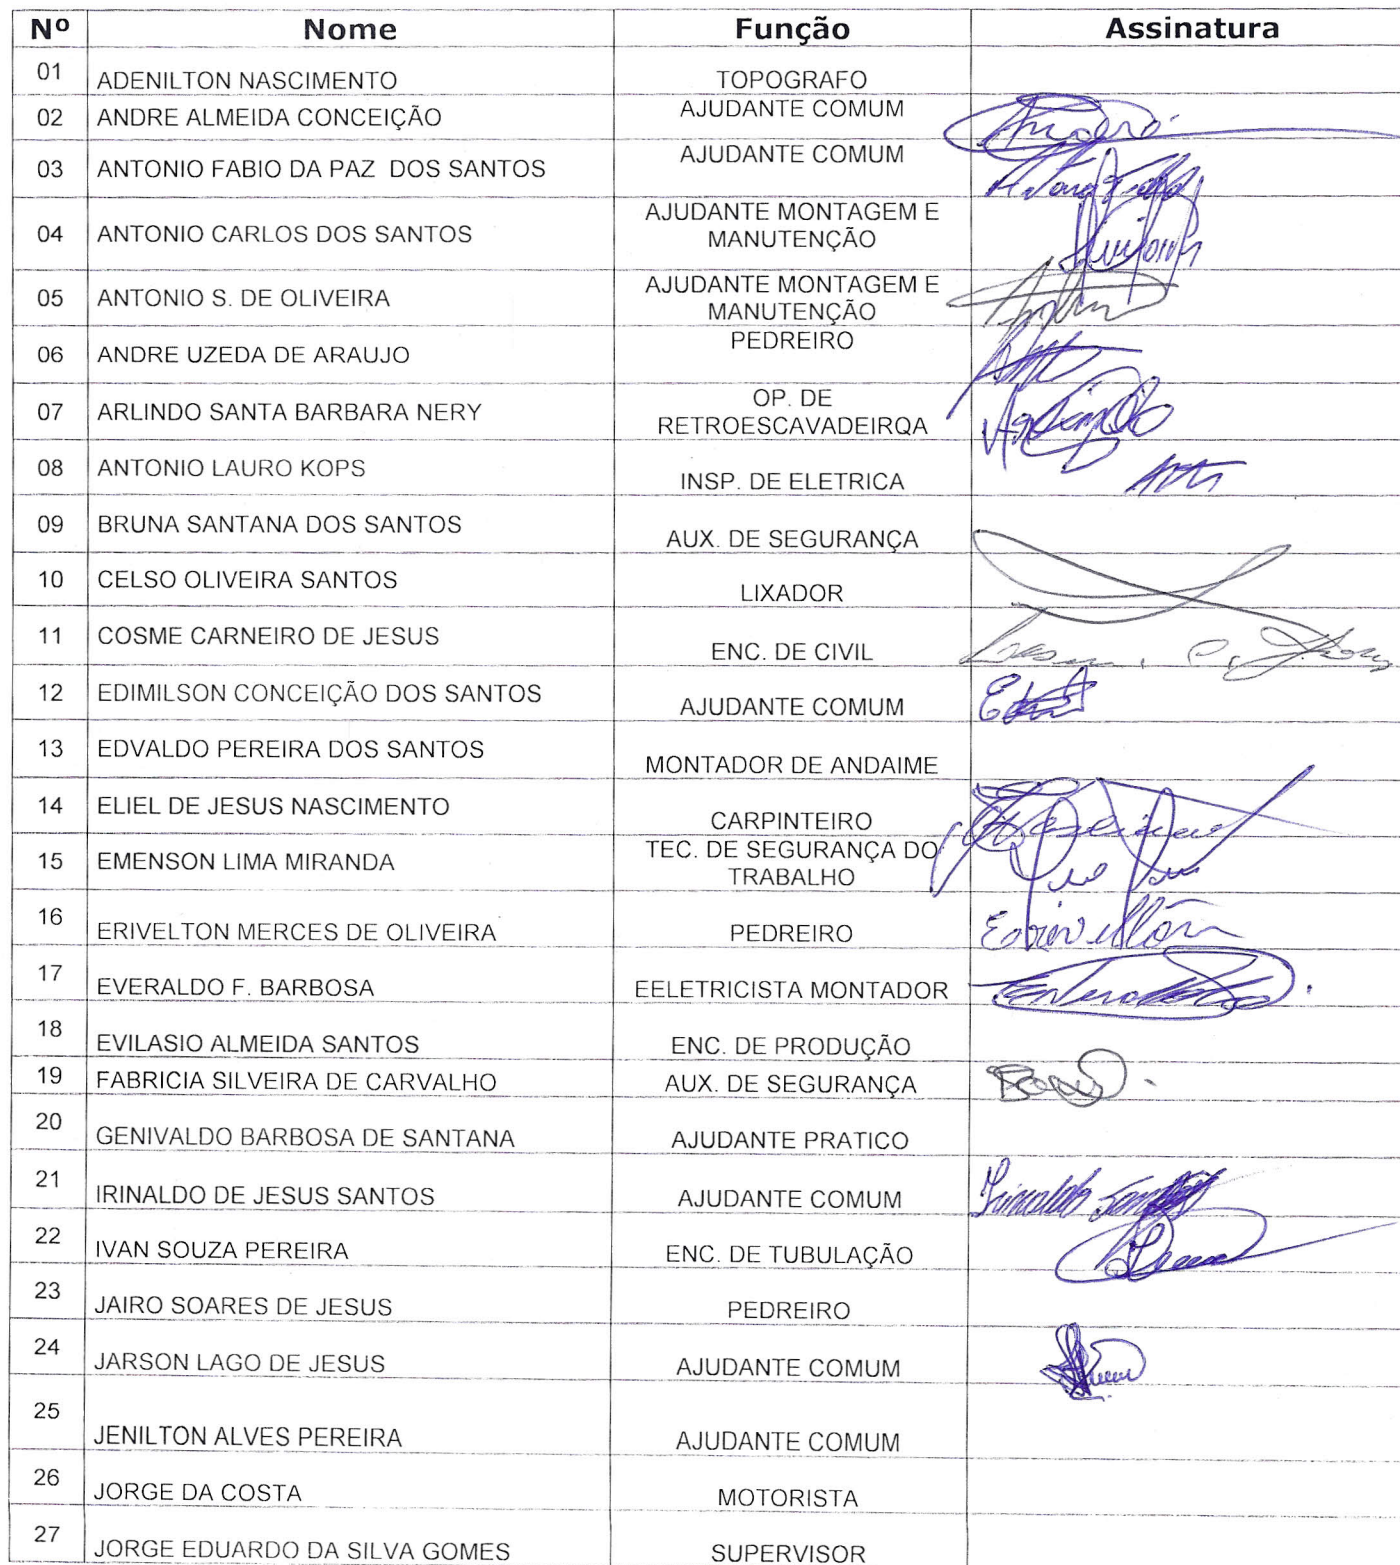 Nº Nome Função Assinatura
01 ADENILTON NASCIMENTO TOPOGRAFO
02 ANDRE ALMEIDA CONCEIÇÃO AJUDANTE COMUM
03 ANTONIO FABIO DA PAZ DOS SANTOS AJUDANTE COMUM
04 ANTONIO CARLOS DOS SANTOS AJUDANTE MONTAGEM E
MANUTENÇÃO
05 ANTONIO S. DE OLIVEIRA AJUDANTE MONTAGEM E
MANUTENÇÃO
06 ANDRE UZEDA DE ARAUJO PEDREIRO
07 ARLINDO SANTA BARBARA NERY OP. DE
RETROESCAVADEIRQA
08 ANTONIO LAURO KOPS INSP. DE ELETRICA
09 BRUNA SANTANA DOS SANTOS AUX. DE SEGURANÇA
10 CELSO OLIVEIRA SANTOS LIXADOR
11 COSME CARNEIRO DE JESUS ENC. DE CIVIL
12 EDIMILSON CONCEIÇÃO DOS SANTOS AJUDANTE COMUM
13 EDVALDO PEREIRA DOS SANTOS MONTADOR DE ANDAIME
14 ELIEL DE JESUS NASCIMENTO CARPINTEIRO
15 EMENSON LIMA MIRANDA TEC. DE SEGURANÇA DO
TRABALHO
16 ERIVELTON MERCES DE OLIVEIRA PEDREIRO
17 EVERALDO F. BARBOSA EELETRICISTA MONTADOR
18 EVILASIO ALMEIDA SANTOS ENC. DE PRODUÇÃO
19 FABRICIA SILVEIRA DE CARVALHO AUX. DE SEGURANÇA
20 GENIVALDO BARBOSA DE SANTANA AJUDANTE PRATICO
21 IRINALDO DE JESUS SANTOS AJUDANTE COMUM
22 IVAN SOUZA PEREIRA ENC. DE TUBULAÇÃO
23 JAIRO SOARES DE JESUS PEDREIRO
24 JARSON LAGO DE JESUS AJUDANTE COMUM
25 JENILTON ALVES PEREIRA AJUDANTE COMUM
26 JORGE DA COSTA MOTORISTA
27 JORGE EDUARDO DA SILVA GOMES SUPERVISOR